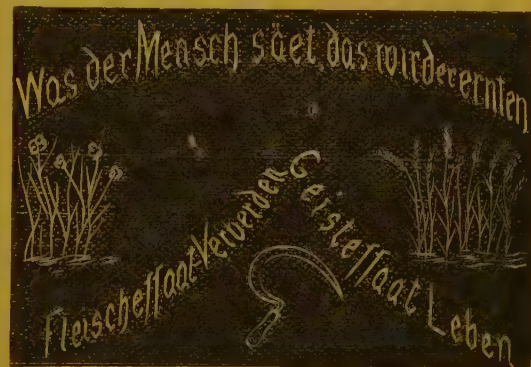 Was der Mensch säet, das wird er ernten
Fleischessaat Verderben
Geistessaat Leben